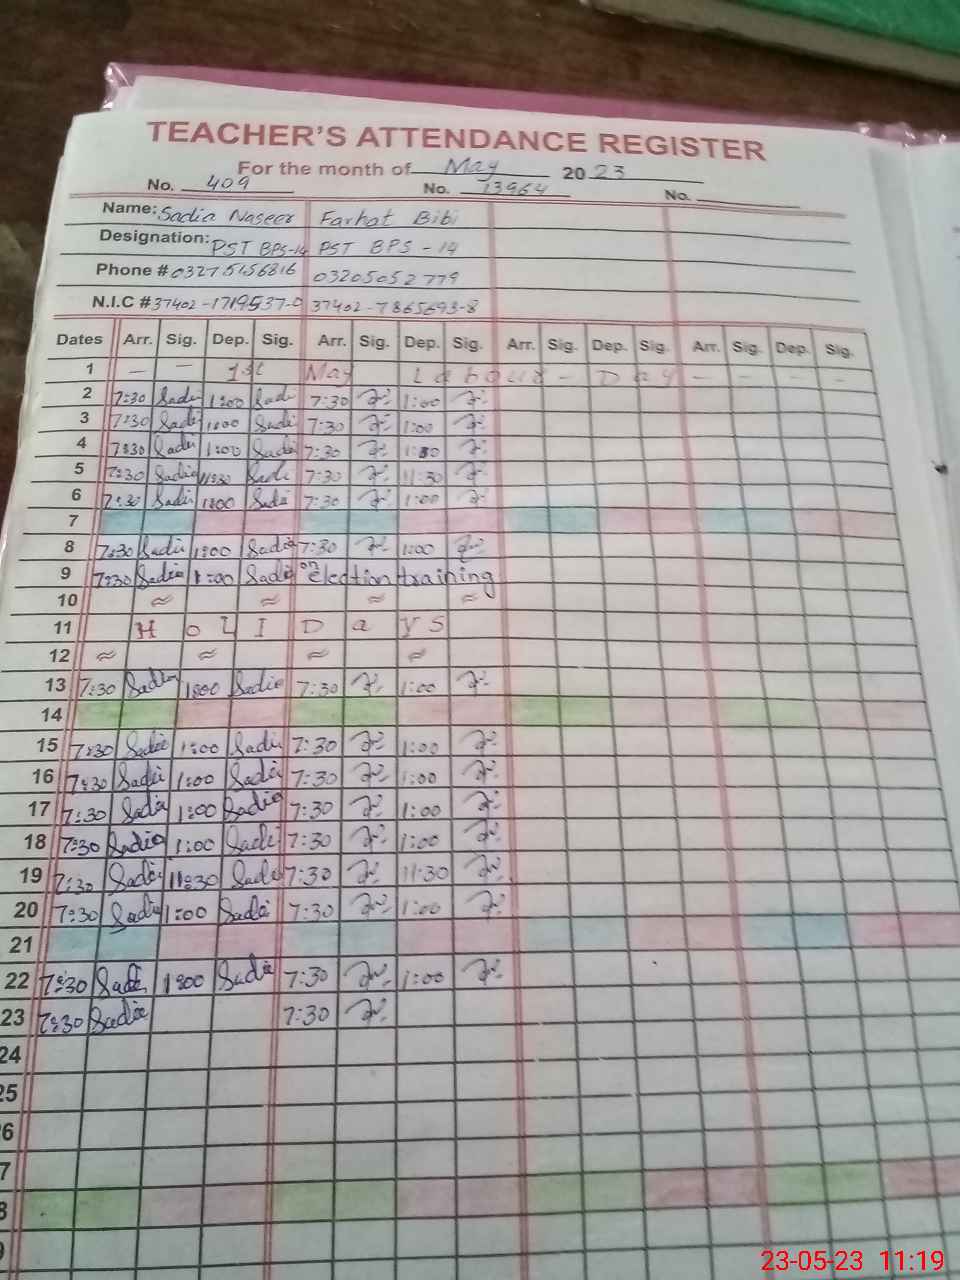 TEACHER'S ATTENDANCE REGISTER
For the month of May 2023
No. 409 No. 13964 No.
Name: Sadia Naseer Farhat Bibi
Designation: PST BPS-14 PST BPS - 14
Phone # 03275156816 03205052779
N.I.C # 37402-1719537-0 37402-7865693-8
Dates Arr. Sig. Dep. Sig. Arr. Sig. Dep. Sig. Arr. Sig. Dep. Sig. Arr. Sig. Dep. Sig.
1 — — 1st May Labour - Day - - - -
2 7:30 Sadia 1:00 Sadia 7:30 1:00
3 7:30 Sadia 1:00 Sadia 7:30 1:00
4 7:30 Sadia 1:00 Sadia 7:30 1:30
5 7:30 Sadia 11:30 Sadia 7:30 11:30
6 7:30 Sadia 1:00 Sadia 7:30 1:00
7
8 7:30 Sadia 1:00 Sadia 7:30 1:00
9 7:30 Sadia 1:00 Sadia on election training
10 ≈ ≈ ≈ ≈
11 HOLIDaYS
12 ≈ ≈ ≈ ≈
13 7:30 Sadia 1:00 Sadia 7:30 1:00
14
15 7:30 Sadia 1:00 Sadia 7:30 1:00
16 7:30 Sadia 1:00 Sadia 7:30 1:00
17 7:30 Sadia 1:00 Sadia 7:30 1:00
18 7:30 Sadia 1:00 Sadia 7:30 1:00
19 7:30 Sadia 11:30 Sadia 7:30 11:30
20 7:30 Sadia 1:00 Sadia 7:30 1:00
21
22 7:30 Sadia 1:00 Sadia 7:30 1:00
23 7:30 Sadia 7:30
24
25
6
7
8
9
23-05-23 11:19